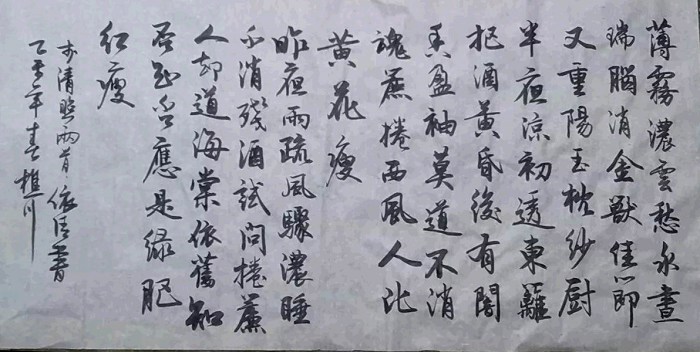 薄霧濃雲愁永晝
瑞腦消金獸佳節
又重陽玉枕紗厨
半夜涼初透東籬
把酒黃昏後有闇
香盈袖莫道不消
魂簾捲西風人比
黄花瘦
昨夜雨疏風驟濃睡
不消殘酒試問捲簾
人却道海棠依舊知
否知否應是緑肥
红瘦
李清照兩首
年春樵川